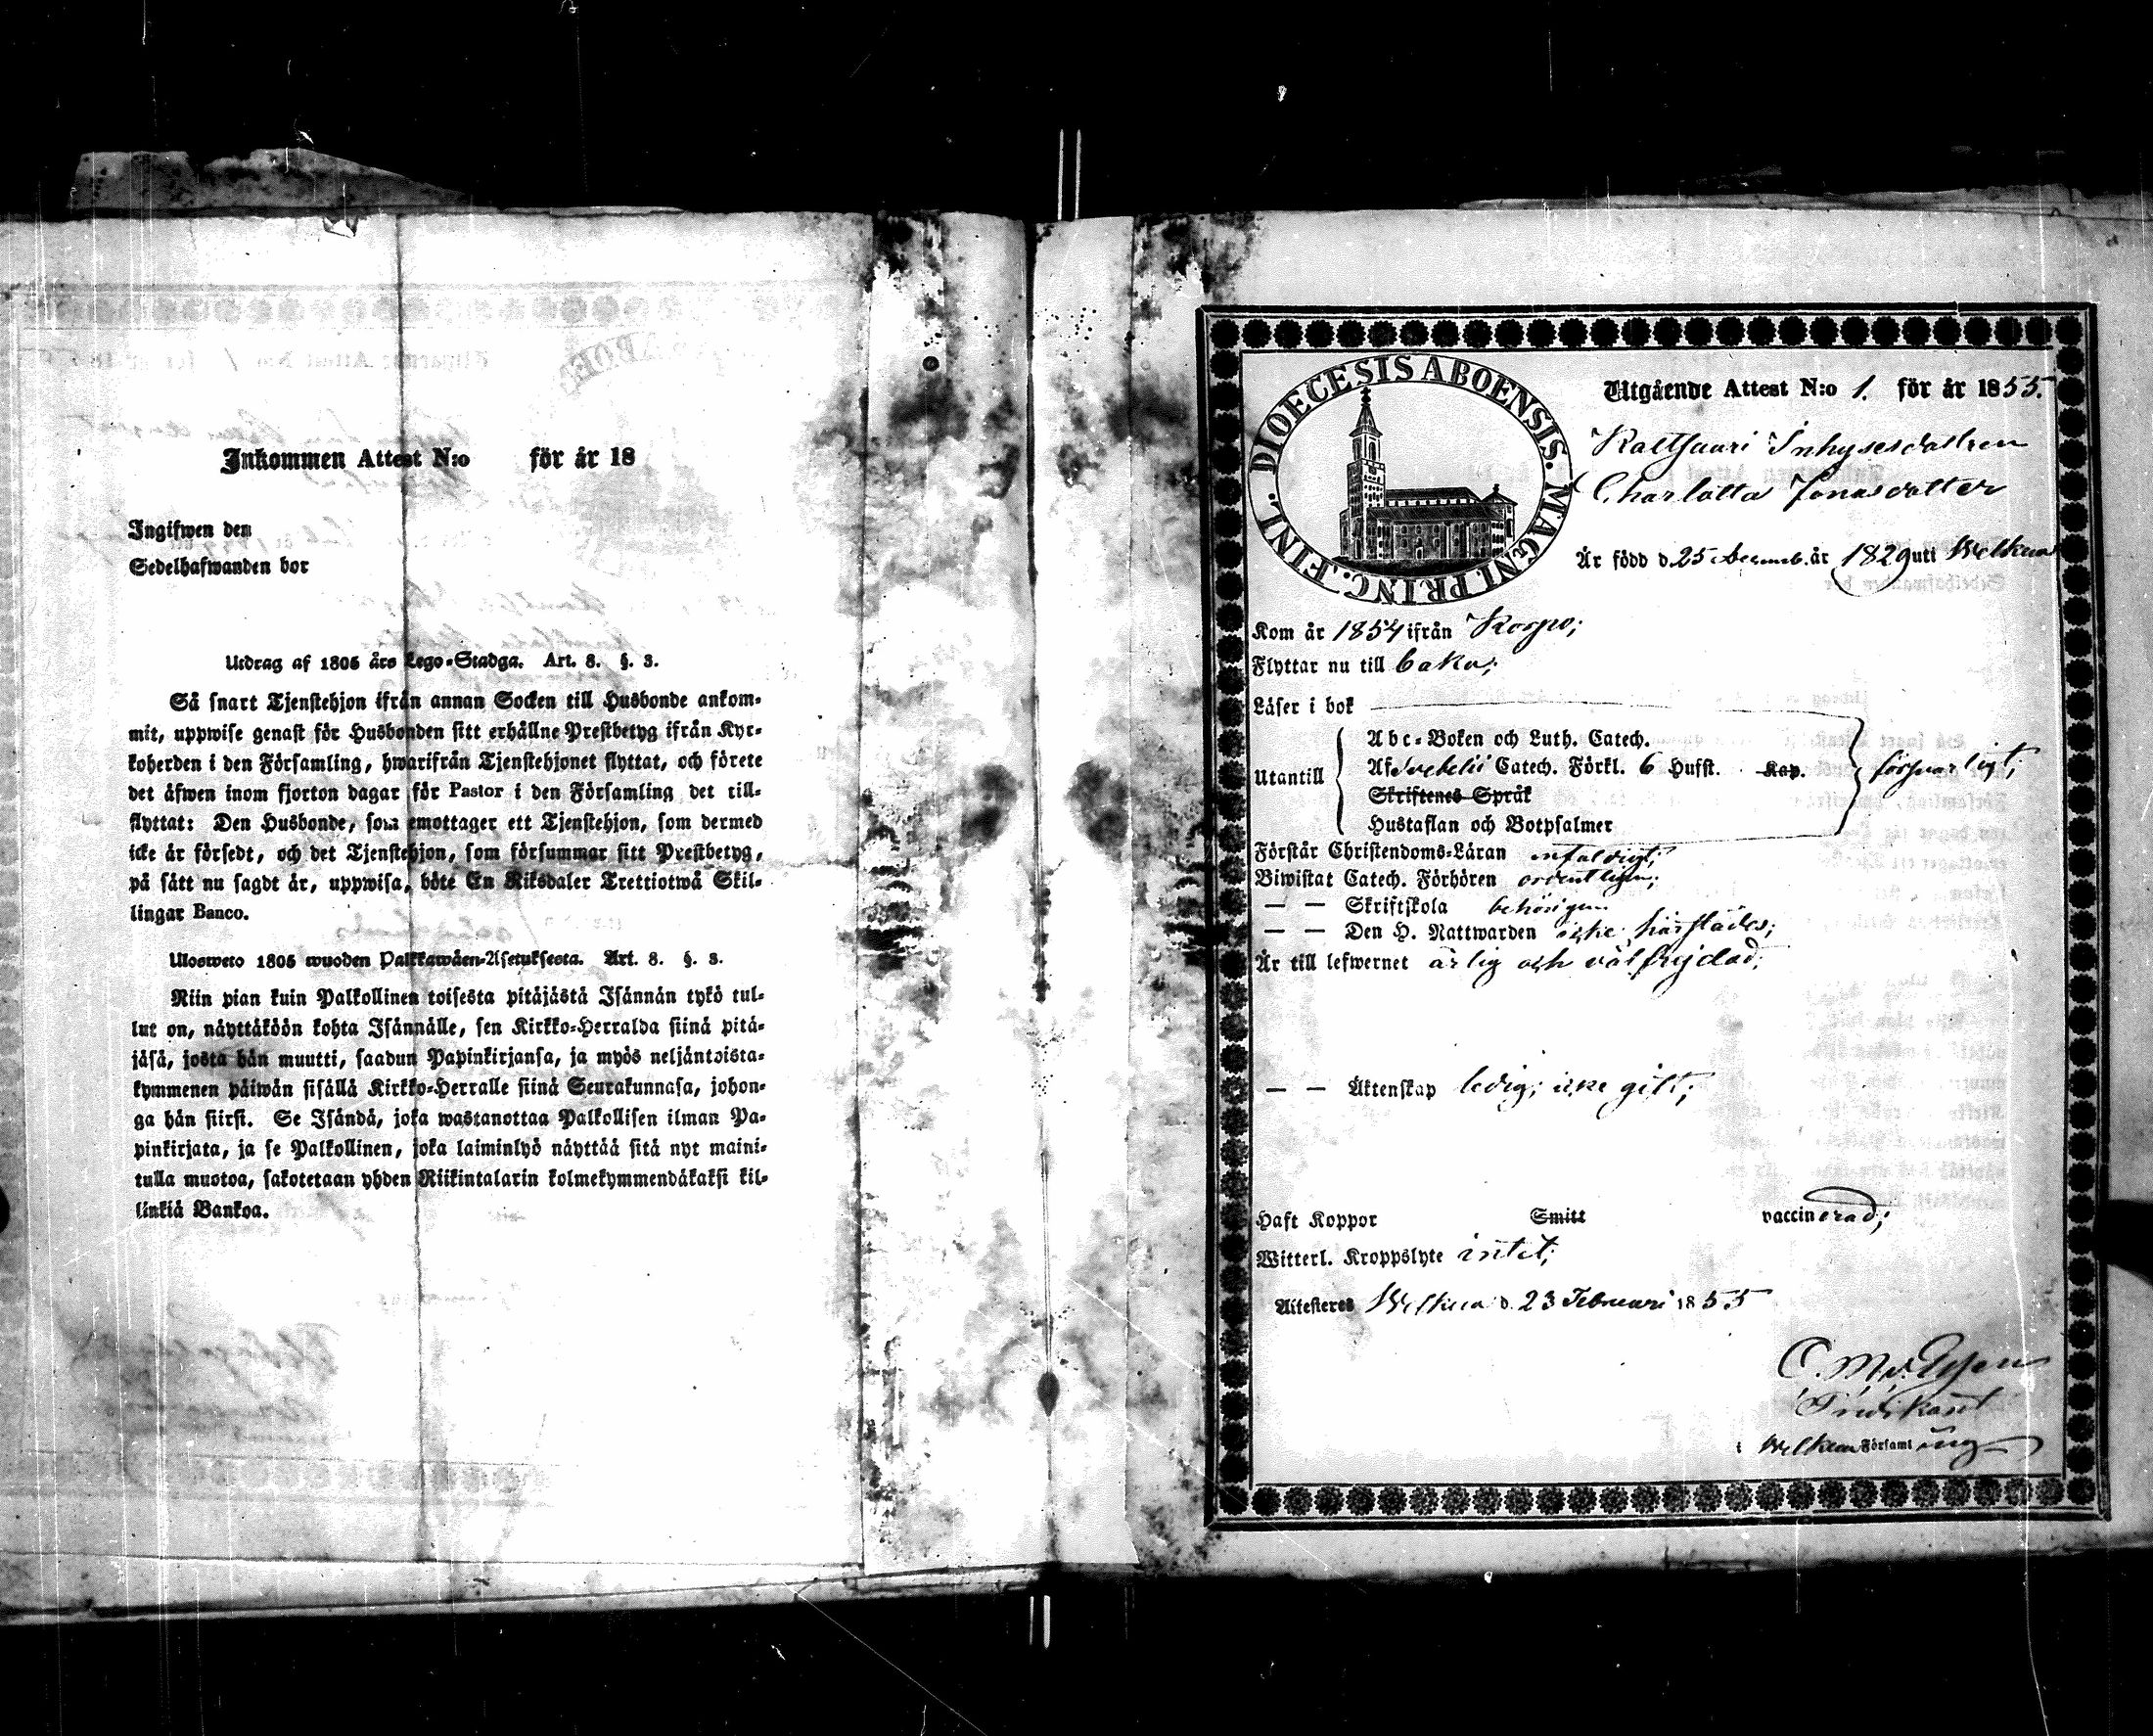 Inkommen Attest N:o för år 18
Ingifwen den
Sedelhafwanden bor
Utdrag af 1805 års Lego-Stadga. Art. 8. §. 3.
Så snart Tjenstehjon ifrån annan Socken till Husbonde ankom-
mit, uppwise genast för Husbonden sitt erhållne Prestbetyg ifrån Kyr-
koherden i den Församling, hwarifrån Tjenstehjonet flyttat, och förete
det äfwen inom fjorton dagar för Pastor i den Församling det till-
flyttat: Den Husbonde, som emottager ett Tjenstehjon, som dermed
icke är försedt, och det Tjenstehjon, som försummar sitt Prestbetyg,
på sätt nu sagdt är, uppwisa, böte En Riksdaler Trettiotwå Skil-
lingar Banco.
Ulosweto 1805 wuoden Palkkawäen-Asetuksesta. Art. 8. §. 3.
Niin pian kuin Palkollinen toisesta pitäjästä Isännän tykö tul-
lut on, näyttäköön kohta Isännälle, sen Kirkko-Herralda siinä pitä-
jäsä, josta hän muutti, saadun Papinkirjansa, ja myös neljäntoista-
kymmenen päiwän sisällä Kirkko-Herralle siinä Seurakunnasa, johon-
ga hän siirsi. Se Isändä, joka wastanottaa Palkollisen ilman Pa-
pinkirjata, ja se Palkollinen, joka laiminlyö näyttää sitä nyt maini-
tulla muotoa, sakotetaan yhden Riikintalarin kolmekymmendäkaksi kil-
linkiä Bankoa.
DIOECESIS ABOENSIS. MAGNI. PRINC. FINL.
Utgående Attest N:o 1. för år 1855.
Inhysesdottren
Charlotta Jonasdotter
Är född d. 25 Decemb. år 1829 uti Welkua
Kom år 1854 ifrån Korpo;
Flyttar nu till baka;
Läser i bok
Abc-Boken och Luth. Catech.
Utantill Af Svebelii Catech. Förkl. 6 Hufst. Kap. försvarligt;
Skriftenes Språk
Hustaflan och Botpsalmer
Förstår Christendoms-Läran enfaldigt;
Biwistat Catech. Förhören ordentligen;
— — Skriftskola behörigen
— — Den H. Nattwarden icke härstädes;
Är till lefwernet ärlig och välfrejdad;
— — Äktenskap ledig; icke gift;
Haft Koppor Smitt vaccinerad;
Witterl. Kroppslyte intet;
Attesteres Welkua d. 23 Februari 1855
Prædikant
i Welkua Församling